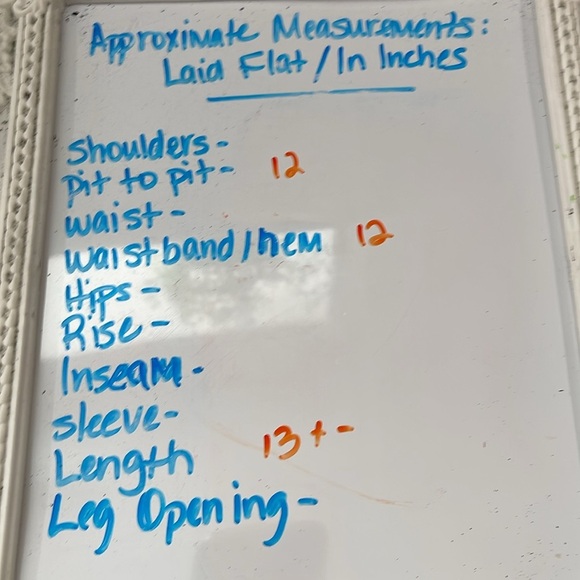 Approximate Measurements:
Laid Flat/In Inches
Shoulders-
pit to pit- 12
waist-
waistband/hem 12
Hips-
Rise-
Inseam-
sleeve-
Length 13+-
Leg Opening-